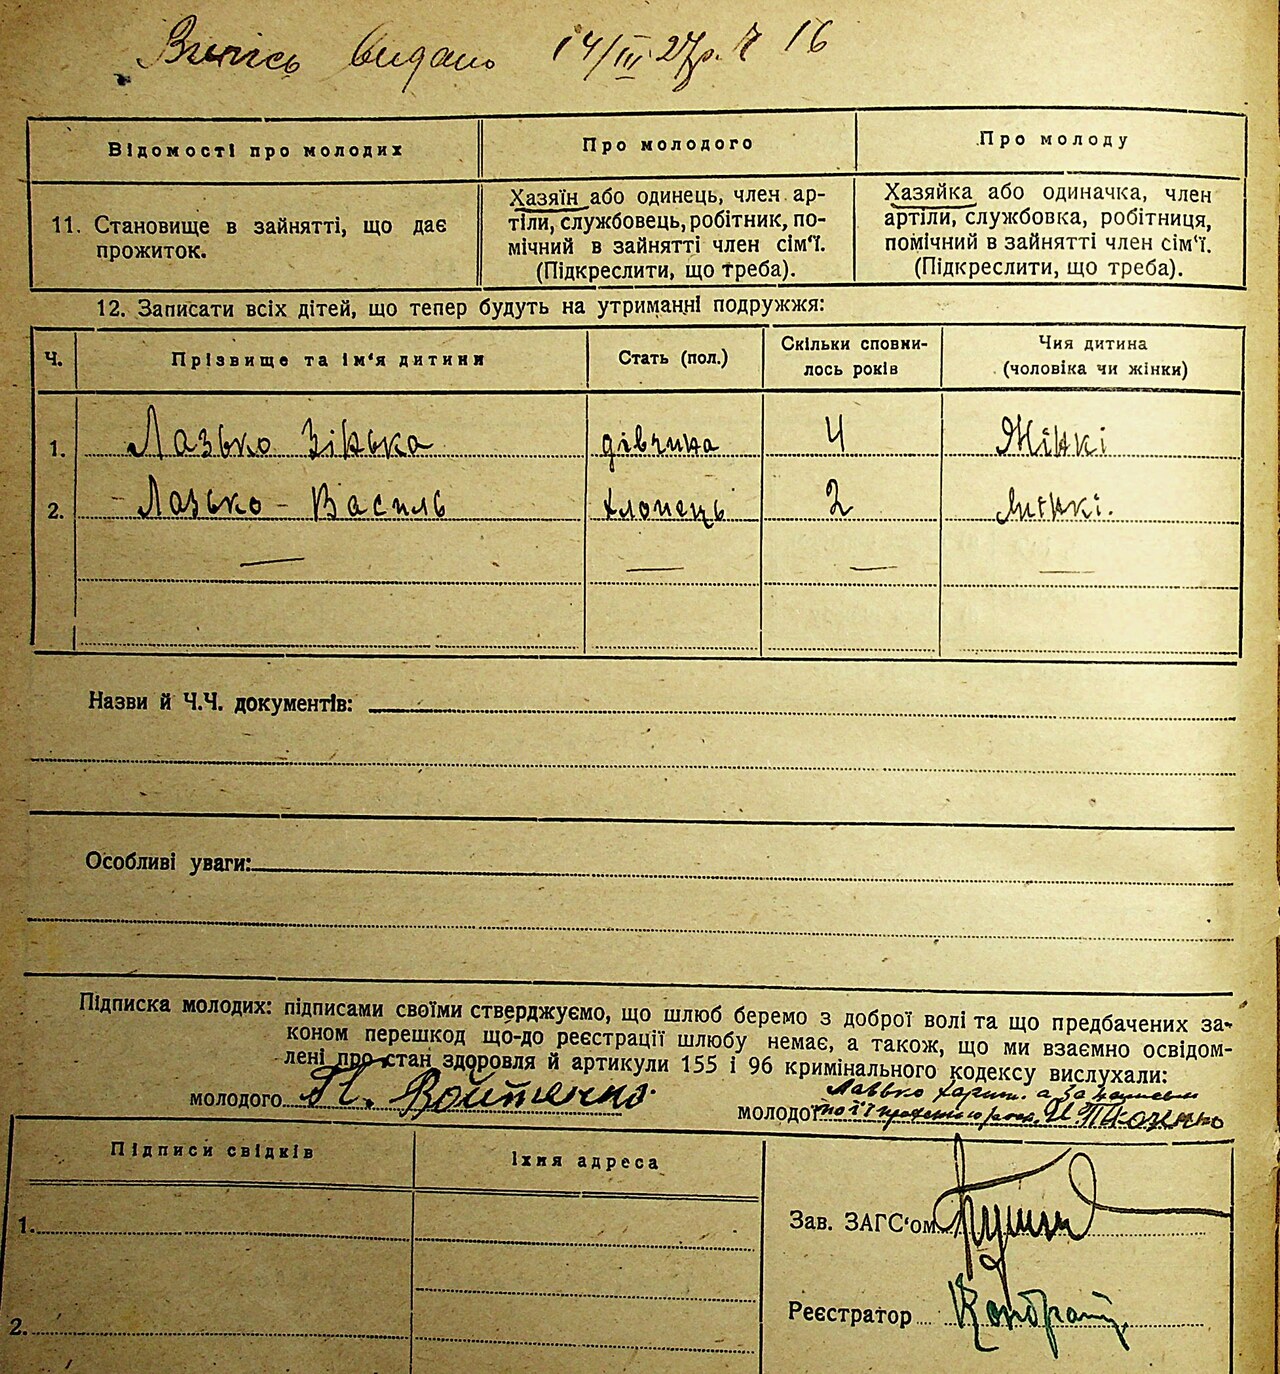 Випісь видано 14/III 27р. Ч 16
Відомості про молодих
Про молодого
Про молоду
11. Становище в зайнятті, що дає
прожиток.
Хазяїн або одинець, член ар-
тіли, службовець, робітник, по-
мічний в зайнятті член сім'ї.
(Підкреслити, що треба).
Хазяйка або одиначка, член
артіли, службовка, робітниця,
помічний в зайнятті член сім'ї.
(Підкреслити, що треба).
12. Записати всіх дітей, що тепер будуть на утриманні подружжя:
Ч.
Прізвище та ім'я дитини
Стать (пол.)
Скільки сповни-
лось років
Чия дитина
(чоловіка чи жінки)
1. Лазько Зінька дівчина 4 Жінкі
2. Лазько - Василь хлопець 2 жінкі.
Назви й Ч.Ч. документів:
Особливі уваги:
Підписка молодих: підписами своїми стверджуємо, що шлюб беремо з доброї волі та що предбачених за-
коном перешкод що-до реєстрації шлюбу немає, а також, що ми взаємно освідом-
лені про стан здоровля й артикули 155 і 96 кримінального кодексу вислухали:
молодого П. Войтенко.
Лазько а за
молодої її Ткаченко
Підписи свідків
Їхня адреса
1.
2.
Зав. ЗАГС'ом
Реєстратор